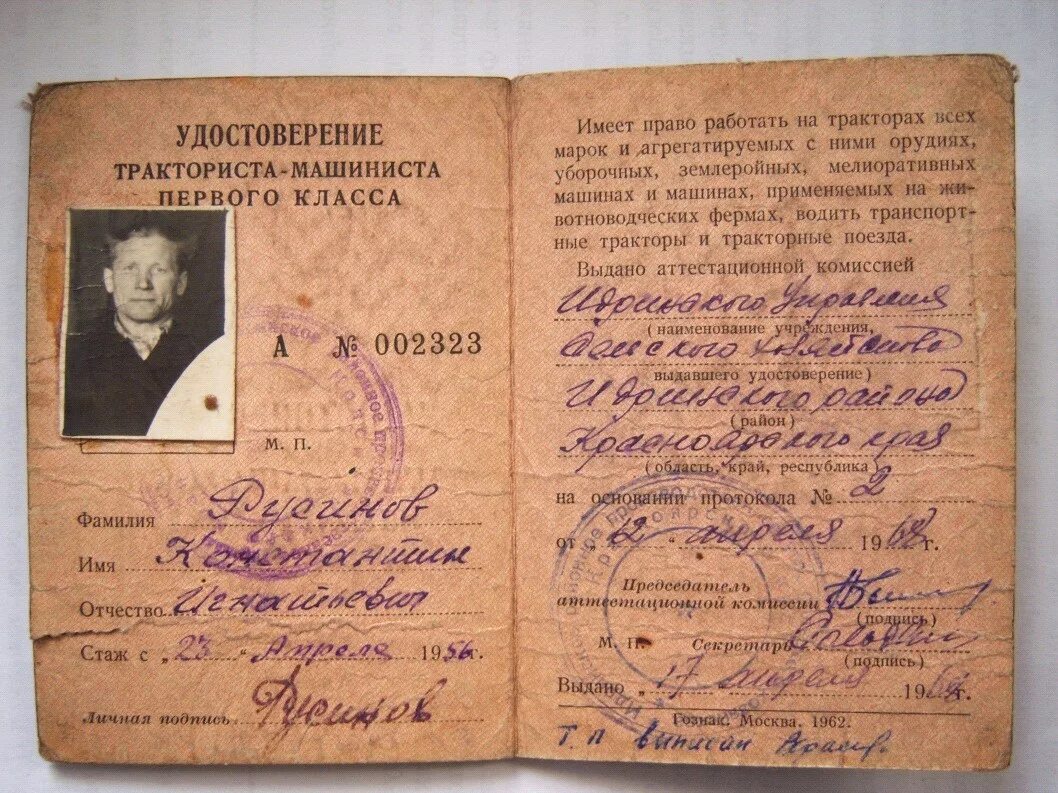 УДОСТОВЕРЕНИЕ
ТРАКТОРИСТА-МАШИНИСТА
ПЕРВОГО КЛАССА
А № 002323
М. П.
Фамилия Русинов
Имя Константин
Отчество Игнатьевич
Стаж с „23“ Апреля 1956г.
Личная подпись Русинов
Имеет право работать на тракторах всех
марок и агрегатируемых с ними орудиях,
уборочных, землеройных, мелиоративных
машинах и машинах, применяемых на жи-
вотноводческих фермах, водить транспорт-
ные тракторы и тракторные поезда.
Выдано аттестационной комиссией
Идринского Управления
(наименование учреждения,
Сельского хозяйства
выдавшего удостоверение)
Идринского района
(район)
Красноярского края
(область, край, республика)
на основании протокола № 2
от „12“ апреля 196 г.
Председатель
аттестационной комиссии
(подпись)
М. П. Секретарь
(подпись)
Выдано „17 апреля 196 г.
Гознак. Москва. 1962.
Т. п выписан